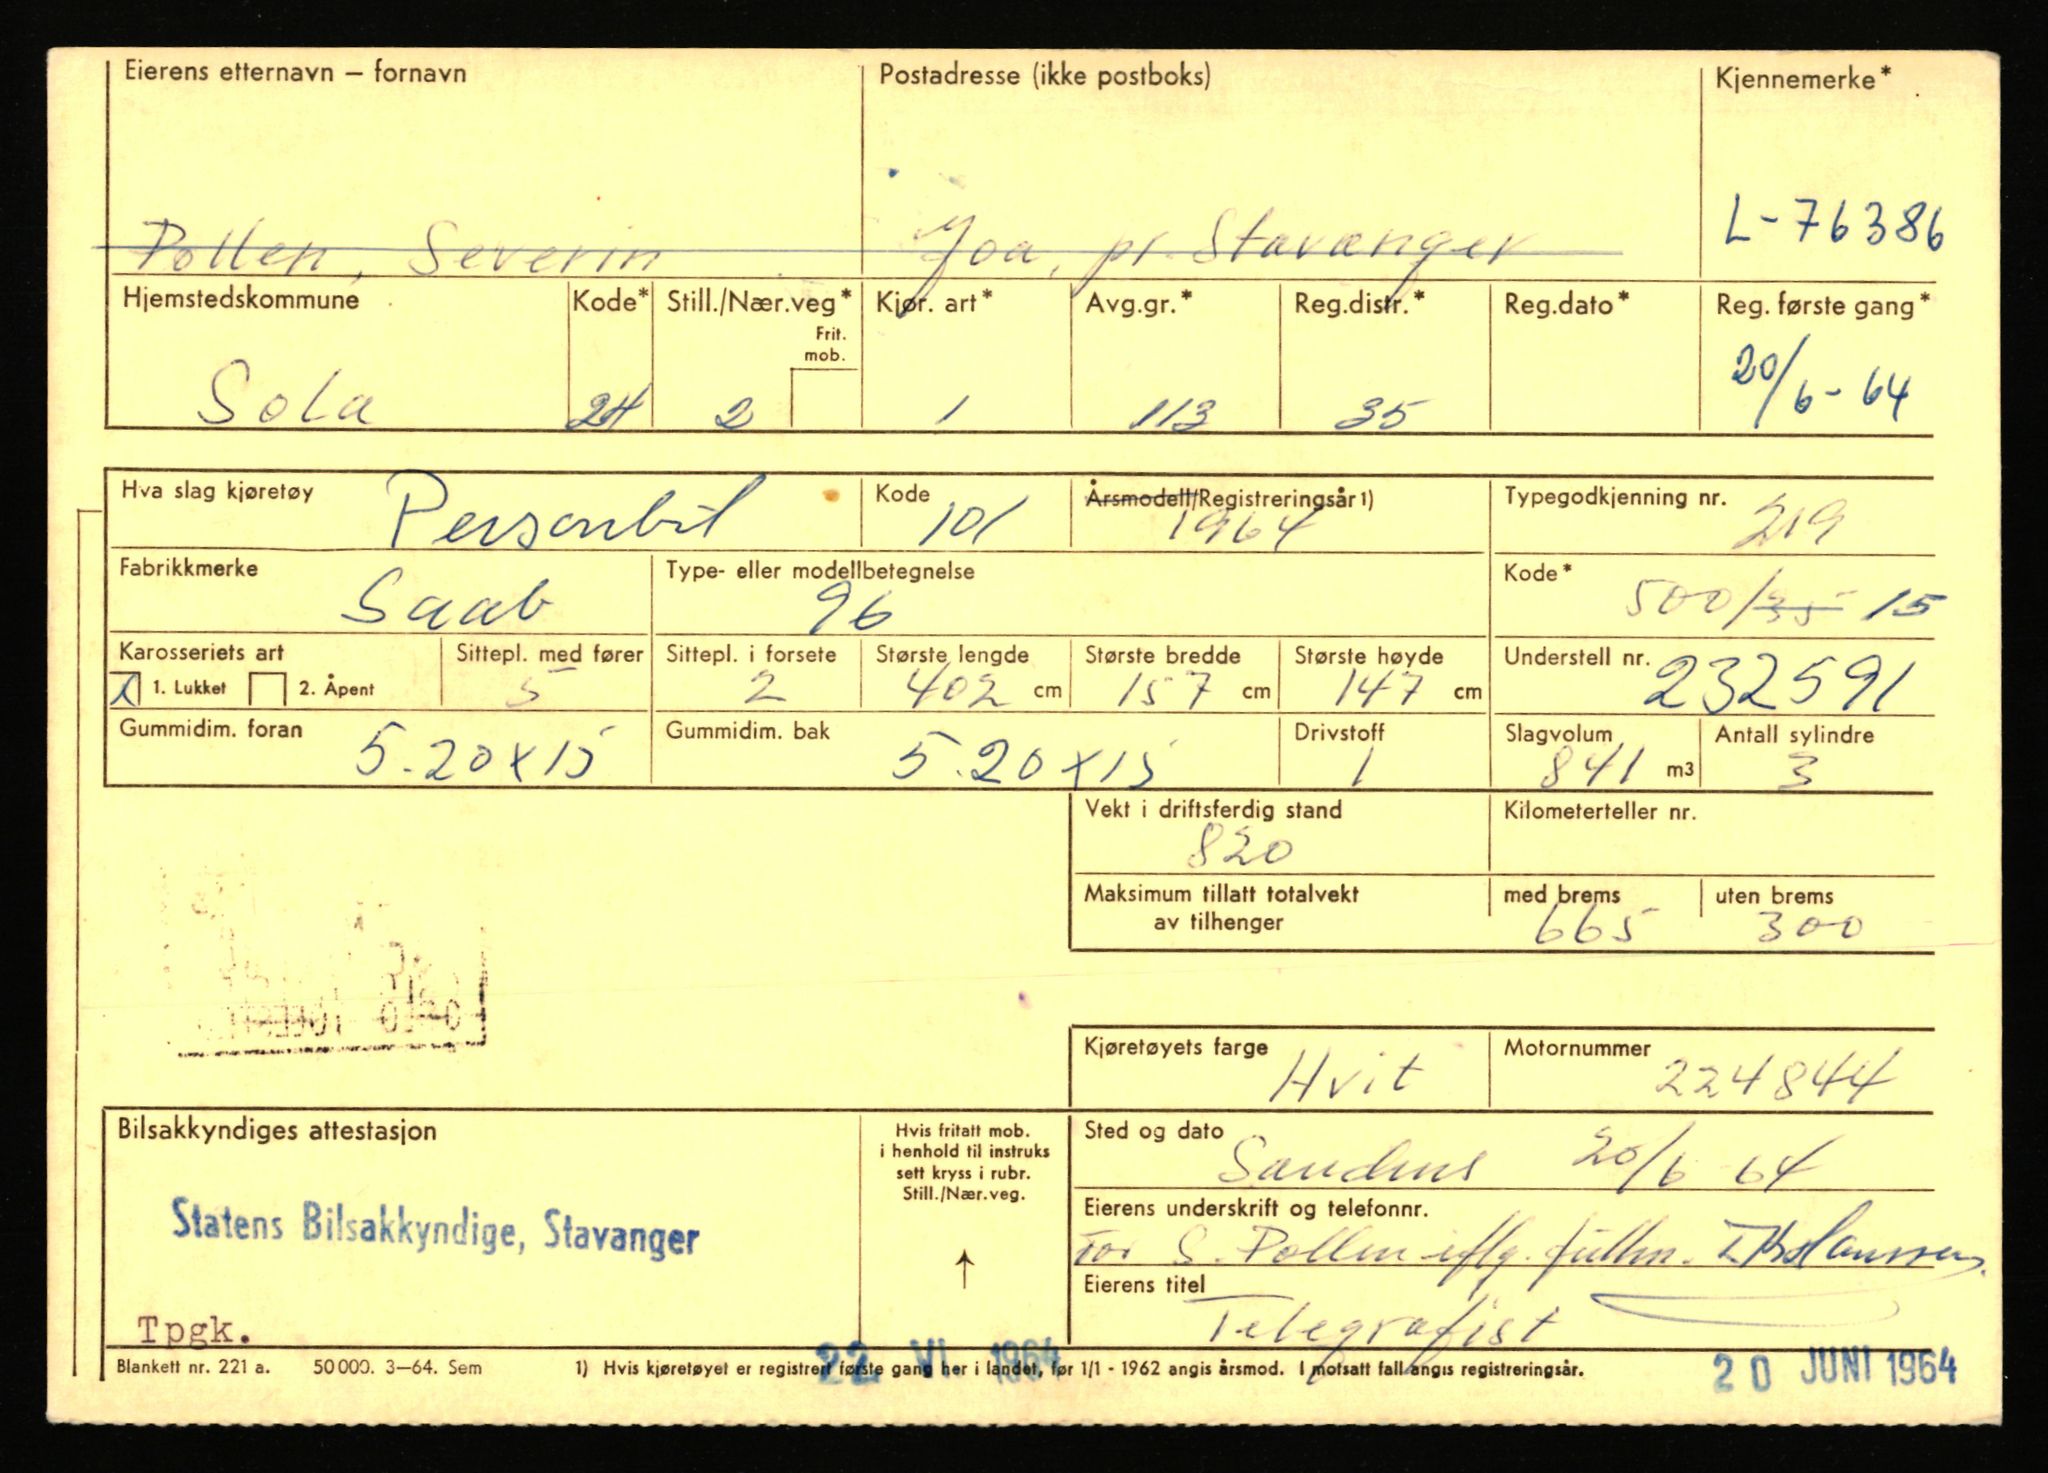 Eierens etternavn – fornavn Postadresse (ikke postboks) Kjennemerke*
Pollen, Severin Joa, pr. Stavanger L-76386
Hjemstedskommune Kode* Still./Nær.veg* Kjør. art* Avg.gr.* Reg.distr.* Reg.dato* Reg. første gang*
Frit.
mob.
Sola 24 2 1 113 35 20/6-64
Hva slag kjøretøy Personbil Kode 101 Årsmodell/Registreringsår 1) 1964 Typegodkjenning nr. 219
Fabrikkmerke Saab Type- eller modellbetegnelse 96 Kode* 500/35 15
Karosseriets art Sittepl. med fører Sittepl. i forsete Største lengde Største bredde Største høyde Understell nr.
X 1. Lukket 2. Åpent 5 2 402 cm 157 cm 147 cm 232591
Gummidim. foran Gummidim. bak Drivstoff Slagvolum Antall sylindre
5.20x15 5.20x15 1 841 m3 3
Vekt i driftsferdig stand Kilometerteller nr.
820
Maksimum tillatt totalvekt med brems uten brems
av tilhenger 665 300
Kjøretøyets farge Hvit Motornummer 224844
Bilsakkyndiges attestasjon
Hvis fritatt mob.
i henhold til instruks
sett kryss i rubr.
Still./Nær.veg.
↑
Sted og dato
Sandnes 20/6 64
Eierens underskrift og telefonnr.
for S. Pollen iflg. fullm.
Eierens titel
Telegrafist
Statens Bilsakkyndige, Stavanger
Tpgk.
22 VI. 1964
Blankett nr. 221 a. 50000. 3–64. Sem 1) Hvis kjøretøyet er registrert første gang her i landet, før 1/1 - 1962 angis årsmod. I motsatt fall angis registreringsår.
20 JUNI 1964